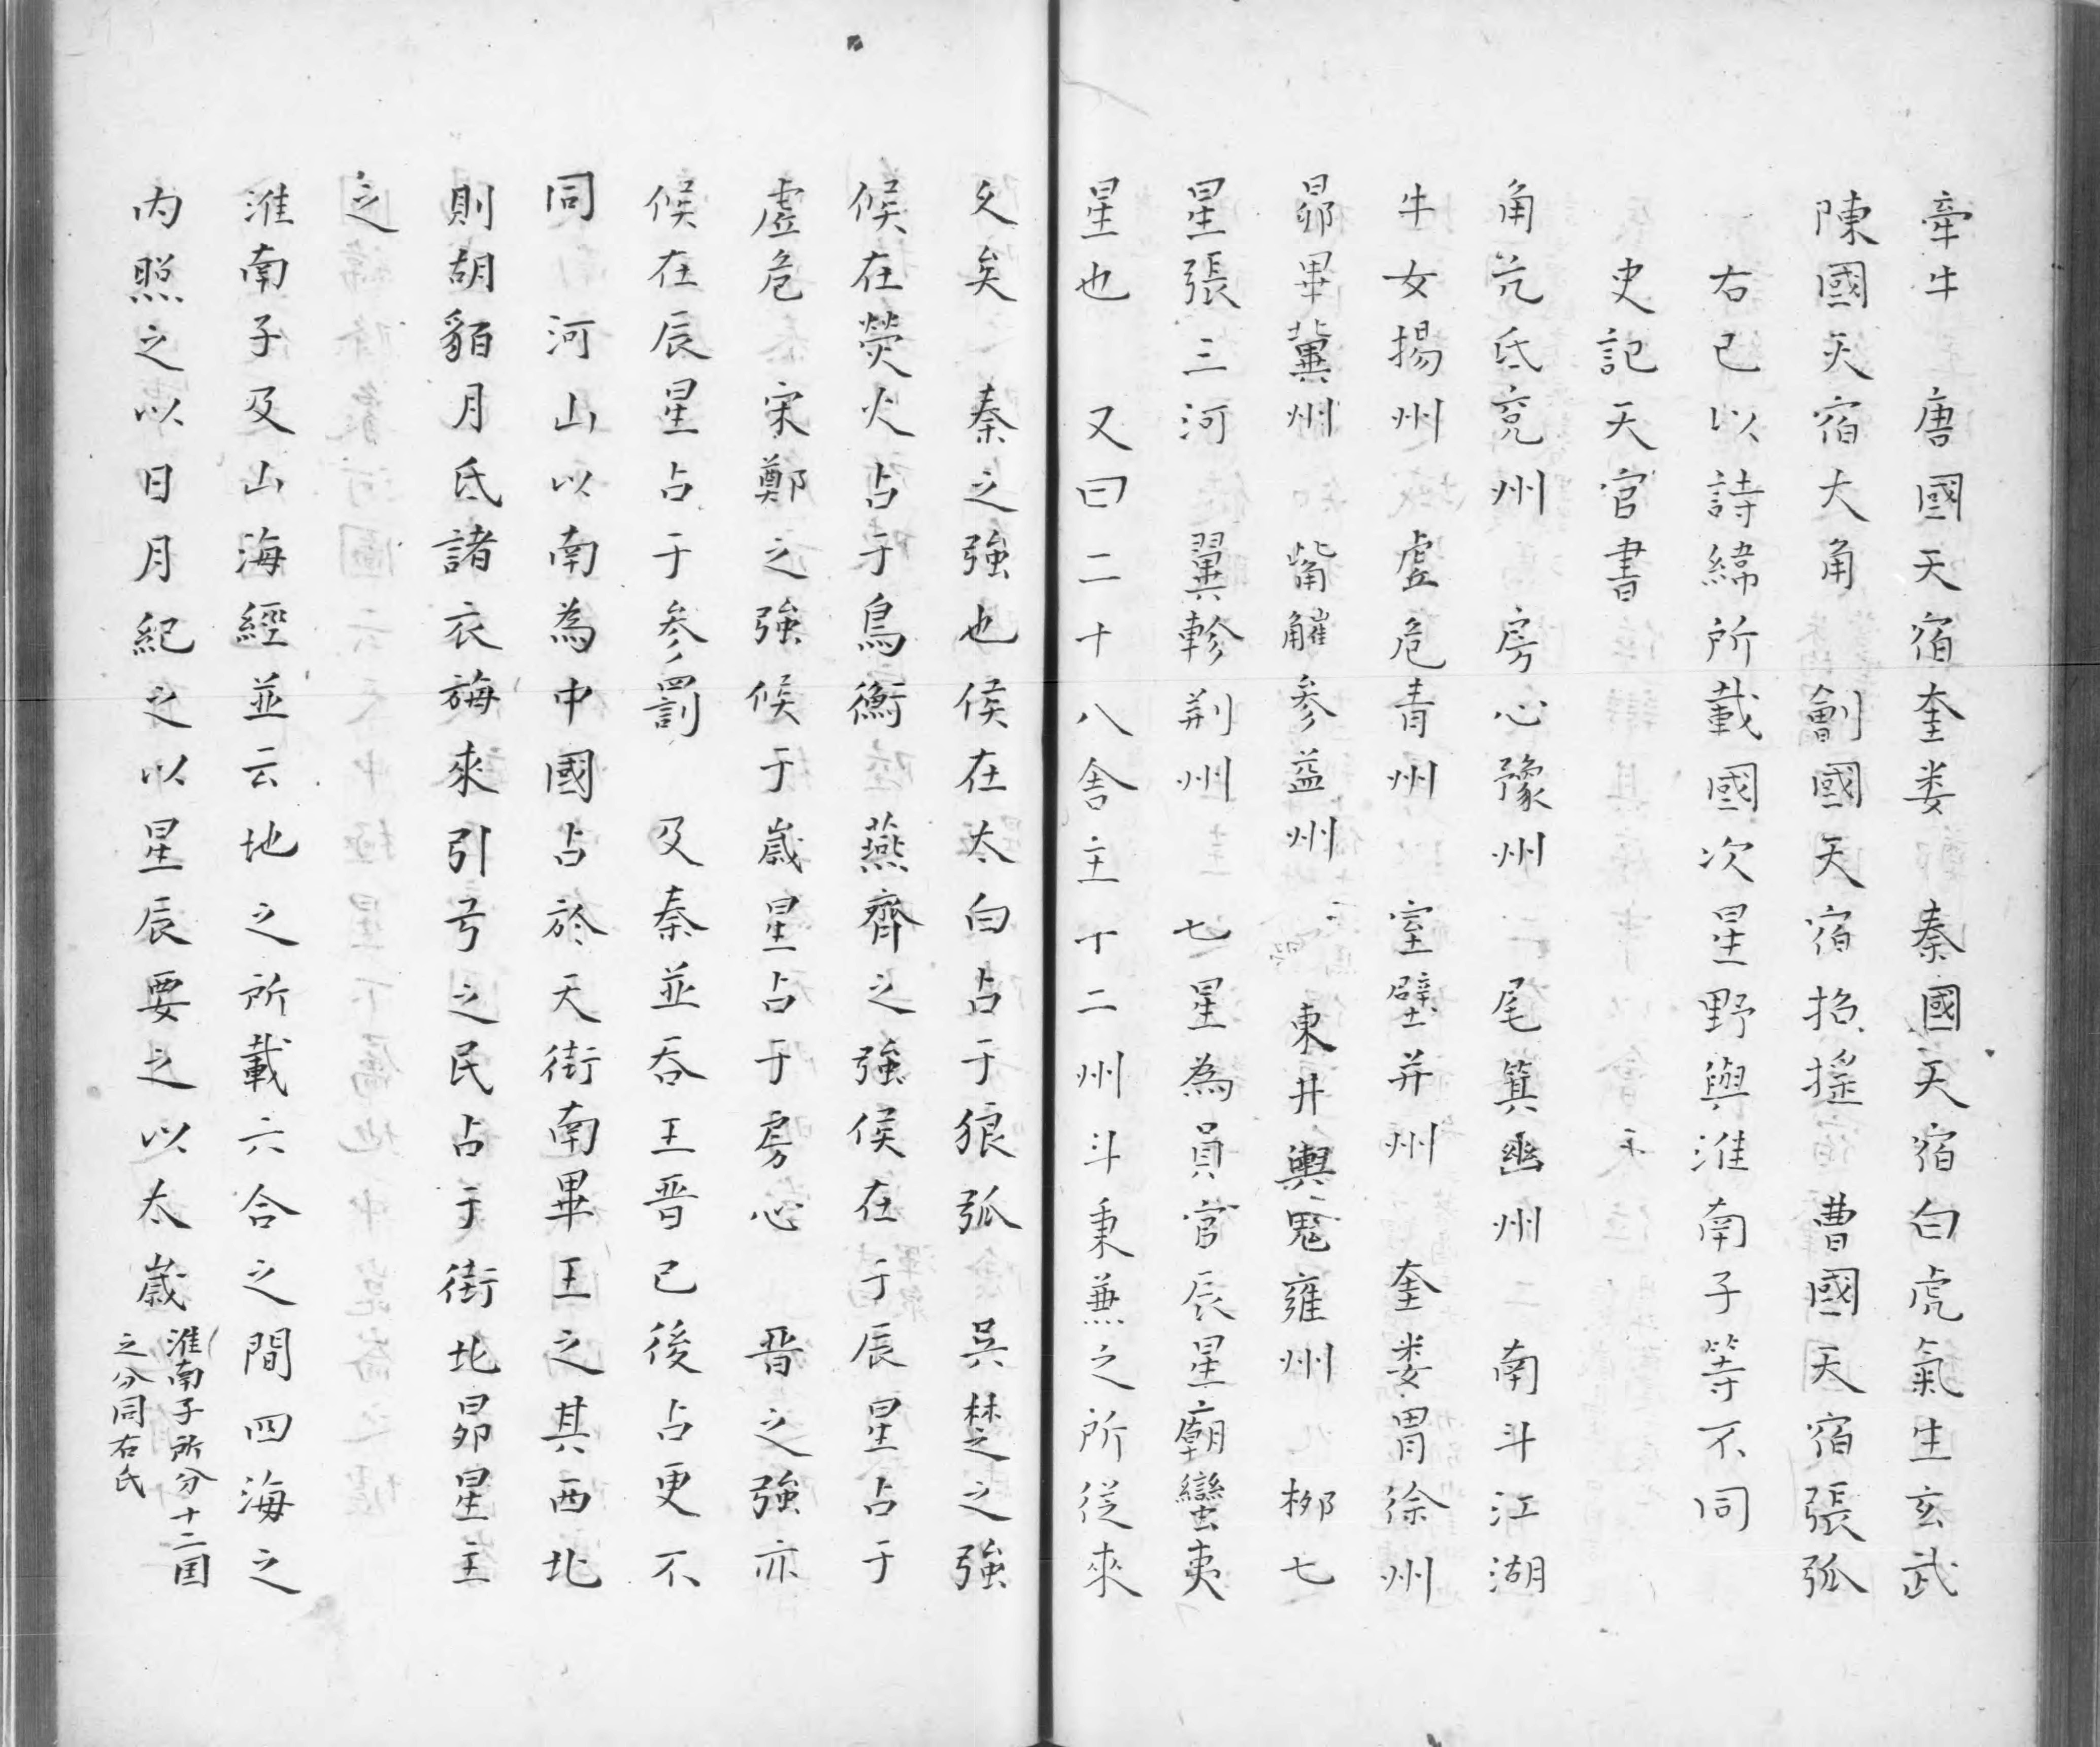 牽牛　唐國天宿奎娄　秦國天宿白虎氣生玄武
陳國天宿大角　鄶國天宿招揺　曹國天宿張弧
右已以詩緯所載國次星野與淮南子等不同
史記天官書
角亢氐兗州　房心豫州　尾箕幽州　南斗江湖
牛女揚州　虛危青州　室壁并州　奎娄胃徐州
昴畢冀州　觜觿参益州　東井輿鬼雍州　栁七
星張三河　翼軫荊州　七星為員官辰星廟蠻夷
星也　又曰二十八舎主十二州斗秉兼之所従來
久矣　秦之強也侯在太白占于狼弧　吳楚之強
候在熒火占于鳥衡　燕齊之強侯在于辰星占于
虛危　宋鄭之強候于歲星占于房心　晋之強亦
候在辰星占于参罰　及秦並吞王晋已後占更不
同　河山以南為中國占於天街南畢王之其西北
則胡貊月氐諸衣旃來引弓之民占于街北昴星主
之
淮南子及山海經並云地之所載六合之間四海之
内照之以日月紀之以星辰要之以太歲淮南子所分十二国
之分同右氏